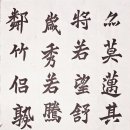 莫邁其
將若望舒
歲秀若騰
鄰竹侶孰